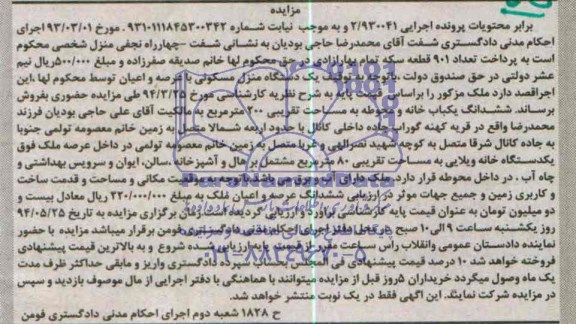 مزایده
برابر محتویات پرونده اجرایی ۲/۹۳۰۰۴۱ و به موجب نیابت شماره ۹۳۱۰۱۱۱۸۴۵۳۰۰۳۴۲ . مورخ ۹۳/۰۳/۰۱ اجرای
احکام مدنی دادگستری شفت آقای محمدرضا حاجی بودیان به نشانی شفت -چهارراه نجفی منزل شخصی محکوم
است به پرداخت تعداد ۹۰۱ قطعه سکه تمام بهارآزادی در حق محکوم لها خانم صدیقه صفرزاده و مبلغ ۵۰۰/۰۰۰ریال نیم
عشر دولتی در حق صندوق دولت .باتوجه به توقیف یک دستگاه منزل مسکونی با عرصه و اعیان توسط محکوم لها ،این
اجراقصد دارد ملک مزکور را براساس قیمت پایه به شرح نظریه کارشناسی مورخ ۹۴/۳/۲۵ طی مزایده حضوری بفروش
برساند. ششدانگ یکباب خانه و محوطه به مساحت تقریبی ۳۰۰ مترمربع به مالکیت آقای علی حاجی بودیان فرزند
محمدرضا واقع در قریه کهنه گوراب جاده داخلی کانال با حدود اربعه شمالا متصل به زمین خانم معصومه تولمی جنوبا
به جاده کانال شرقا متصل به کوچه شهید نصرالهی و غربا متصل به زمین خانم معصومه تولمی در داخل عرصه ملک فوق
یکدستگاه خانه ویلایی به مساحت تقریبی ۸۰ مترمربع مشتمل بر هال و آشپزخانه ،سالن، ایوان و سرویس بهداشتی و
چاه آب ، در داخل محوطه قرار دارد. ملک دارای آب و برق می باشد باتوجه به موقعیت مکانی و مساحت و قدمت ساخت
و کاربری زمین و جمیع جهات موثر در ارزیابی ششدانگ عرصه و اعیان ملک به مبلغ ۲۲۰/۰۰۰/۰۰۰ ریال معادل بیست و
دو میلیون تومان به عنوان قیمت پایه کارشناسی برآورد و ارزیابی گردیده است.زمان برگزاری مزایده به تاریخ ۹۴/۰۵/۲۵
روز یکشنبه ساعت ۹ الی ۱۰ صبح در محل دفتر اجرای احکام مدنی دادگستری فومن برقرار میباشد مزایده با حضور
نماینده دادستان عمومی وانقلاب راس ساعت مقرر از قیمت پایه ارزیابی شده شروع و به بالاترین قیمت پیشنهادی
فروخته خواهد شد ۱۰ درصد قیمت پیشنهادی فی المجلس بحساب سپرده دادگستری واریز و مابقی حداکثر ظرف مدت
یک ماه وصول میگردد خریداران ۵روز قبل از مزایده میتوانند با هماهنگی با دفتر اجرایی از مال موصوف بازدید و سپس
در مزایده شرکت نمایند. این آگهی فقط در یک نوبت منتشر خواهد شد.
ح ۱۸۲۸ شعبه دوم اجرای احکام مدنی دادگستری فومن